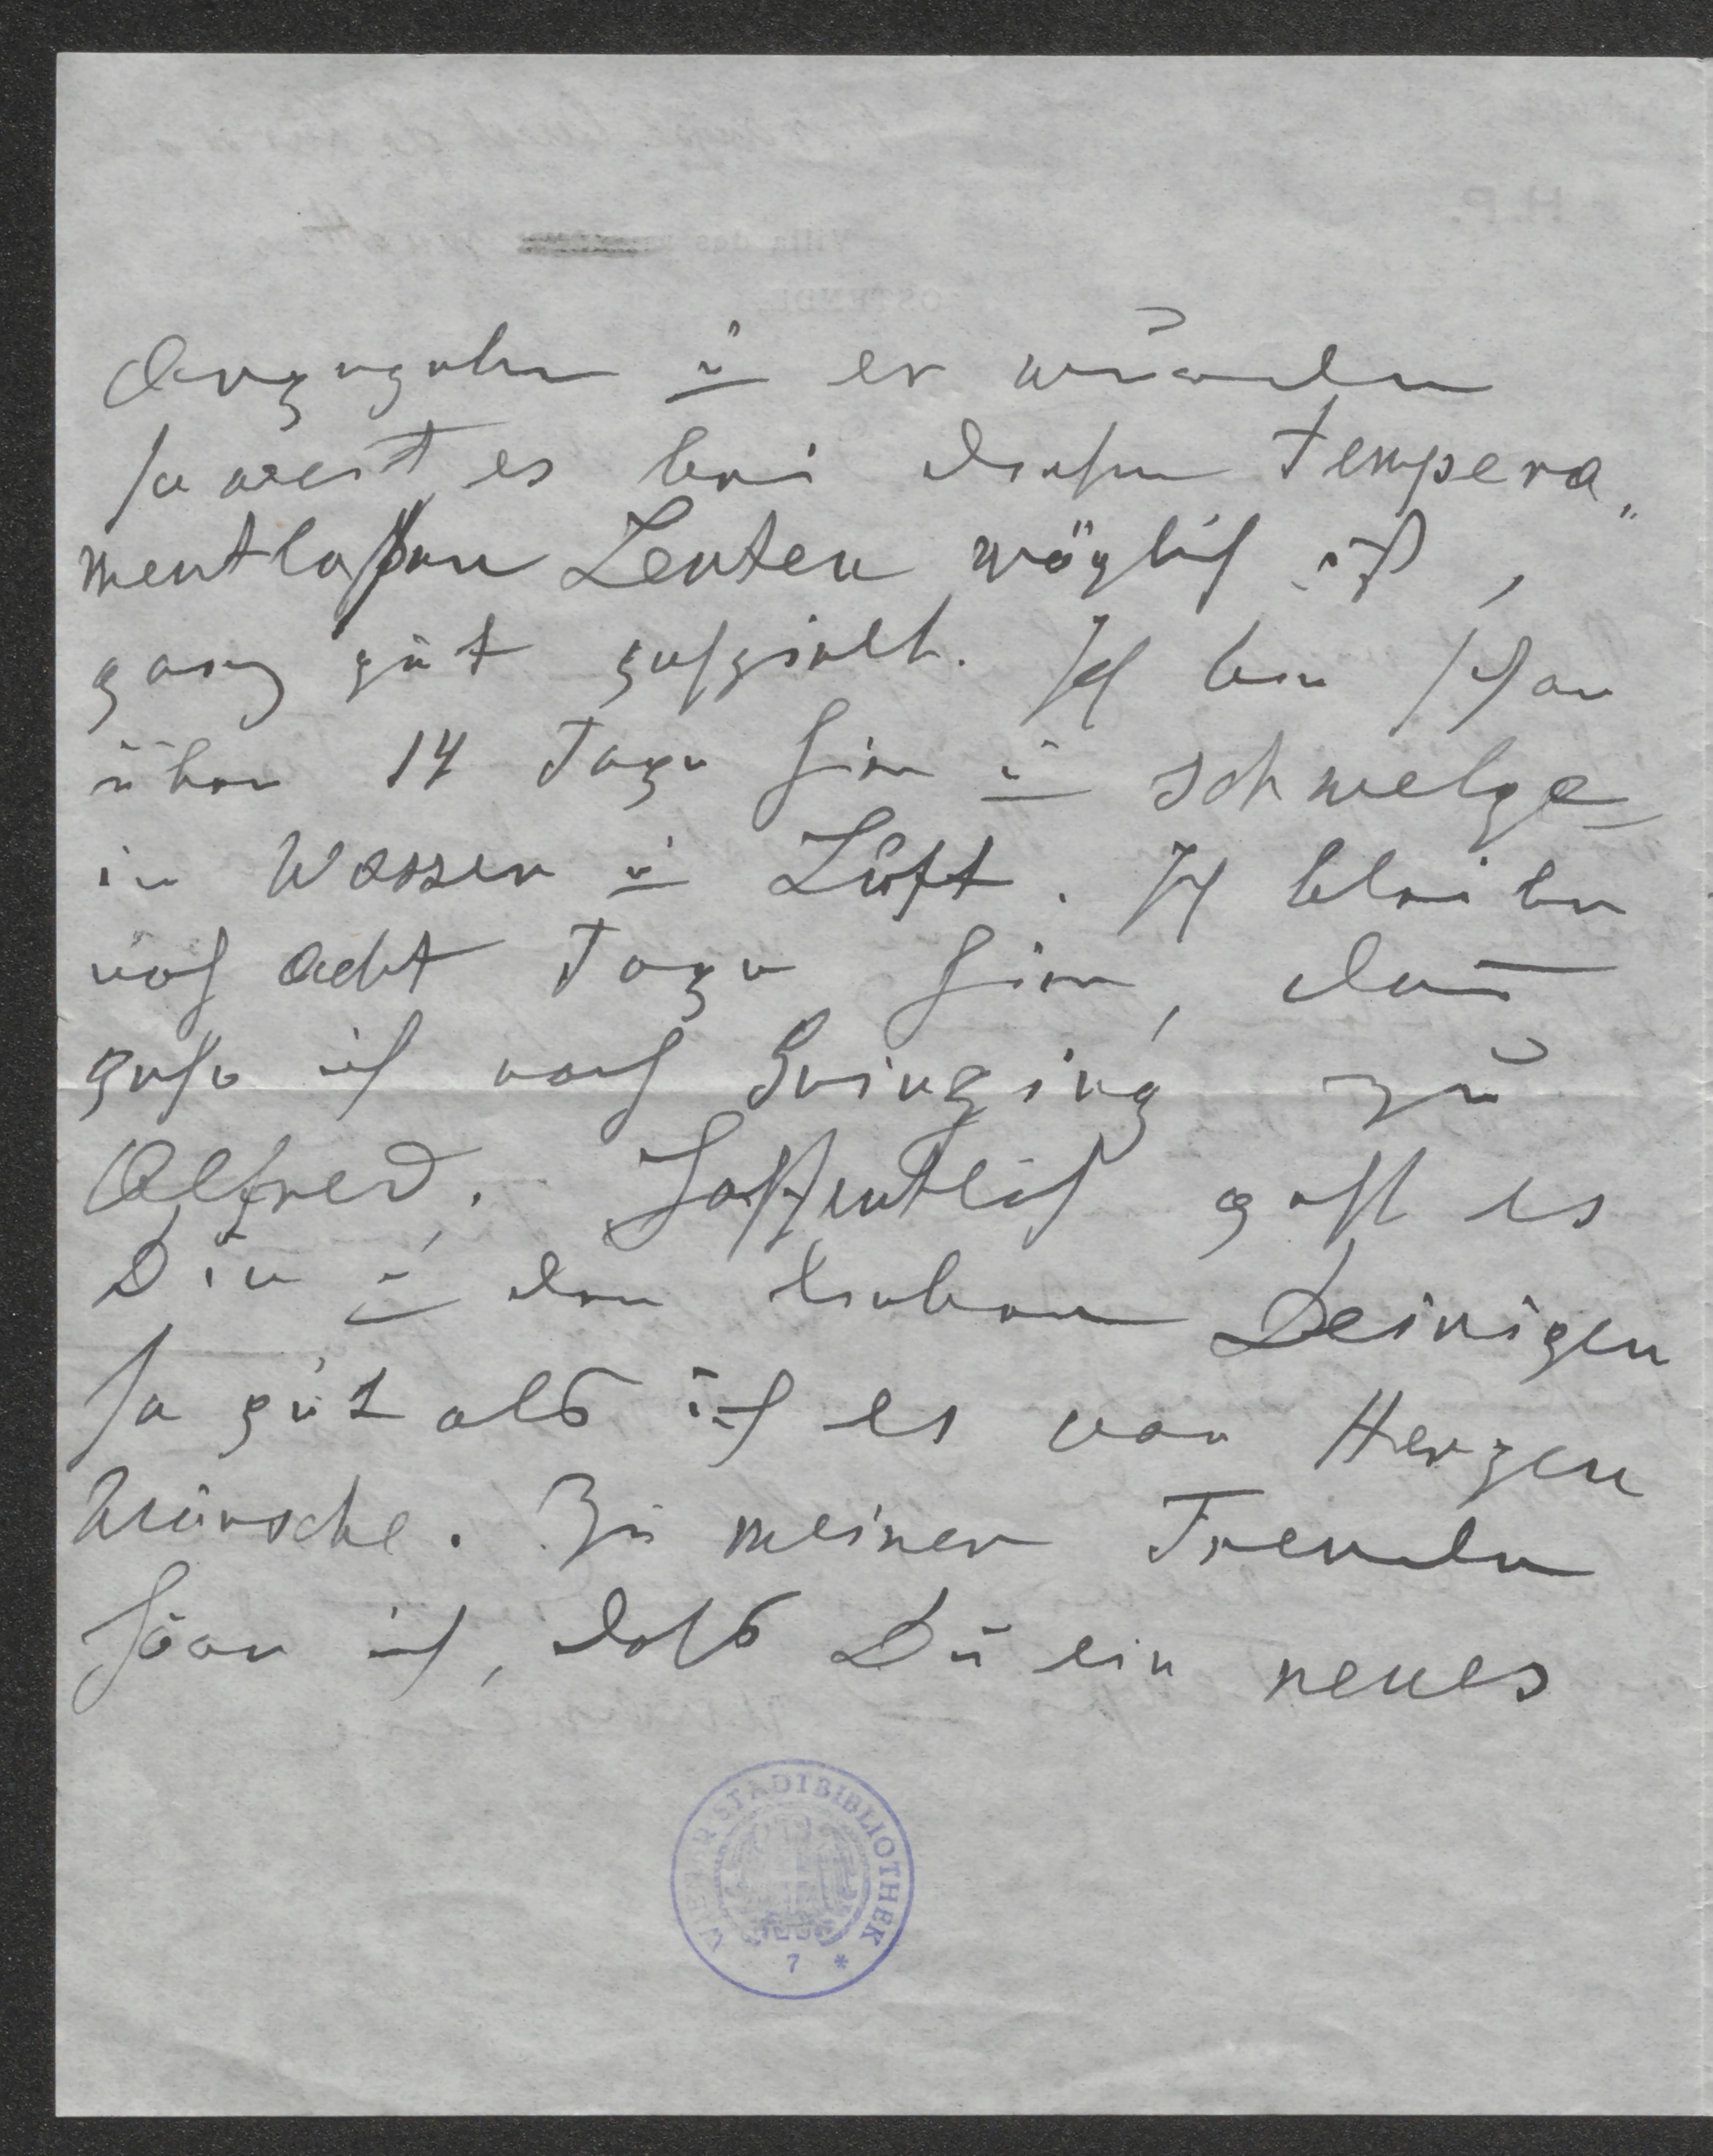 u er wurde
soweit es bei diesen Tempera„
mentlosen Leuten möglich ist,
ganz gut gespielt. Ich bin schon
über 14 Tage hier u schwelge
in Wasser u Luft. Ich bleibe
noch acht Tage hier, dann
gehe ich nach zu
Alfred. Hoffentlich geht es
Dir u den lieben Deinigen
so gut als ich es von Herzen
wünsche. Zu meiner Freude
höre ich, dass Du ein neues
WIENER STADTBIBLIOTHEK
7 *